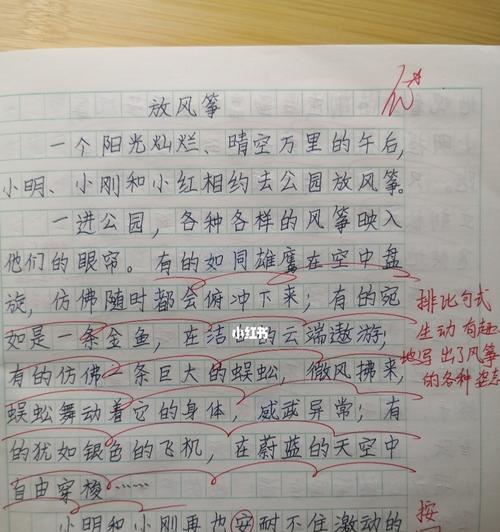 放风筝
一个阳光灿烂、晴空万里的午后,
小明、小刚和小红相约去公园放风筝。
一进公园，各种各样的风筝映入
他们的眼帘。有的如同雄鹰在空中盘
旋，仿佛随时都会俯冲下来；有的宛
如是一条金鱼，在洁 的云端遨游;
小红书
有的仿佛一条巨大的蜈蚣，微风拂来,
蜈蚣舞动着它的身体，威武异常；有
的犹如银色的飞机，在蔚蓝的天空中
自由穿梭……
小明和小刚再也安耐不住激动的
排比句式
生动有趣
地写出了风筝
的各种姿态
按